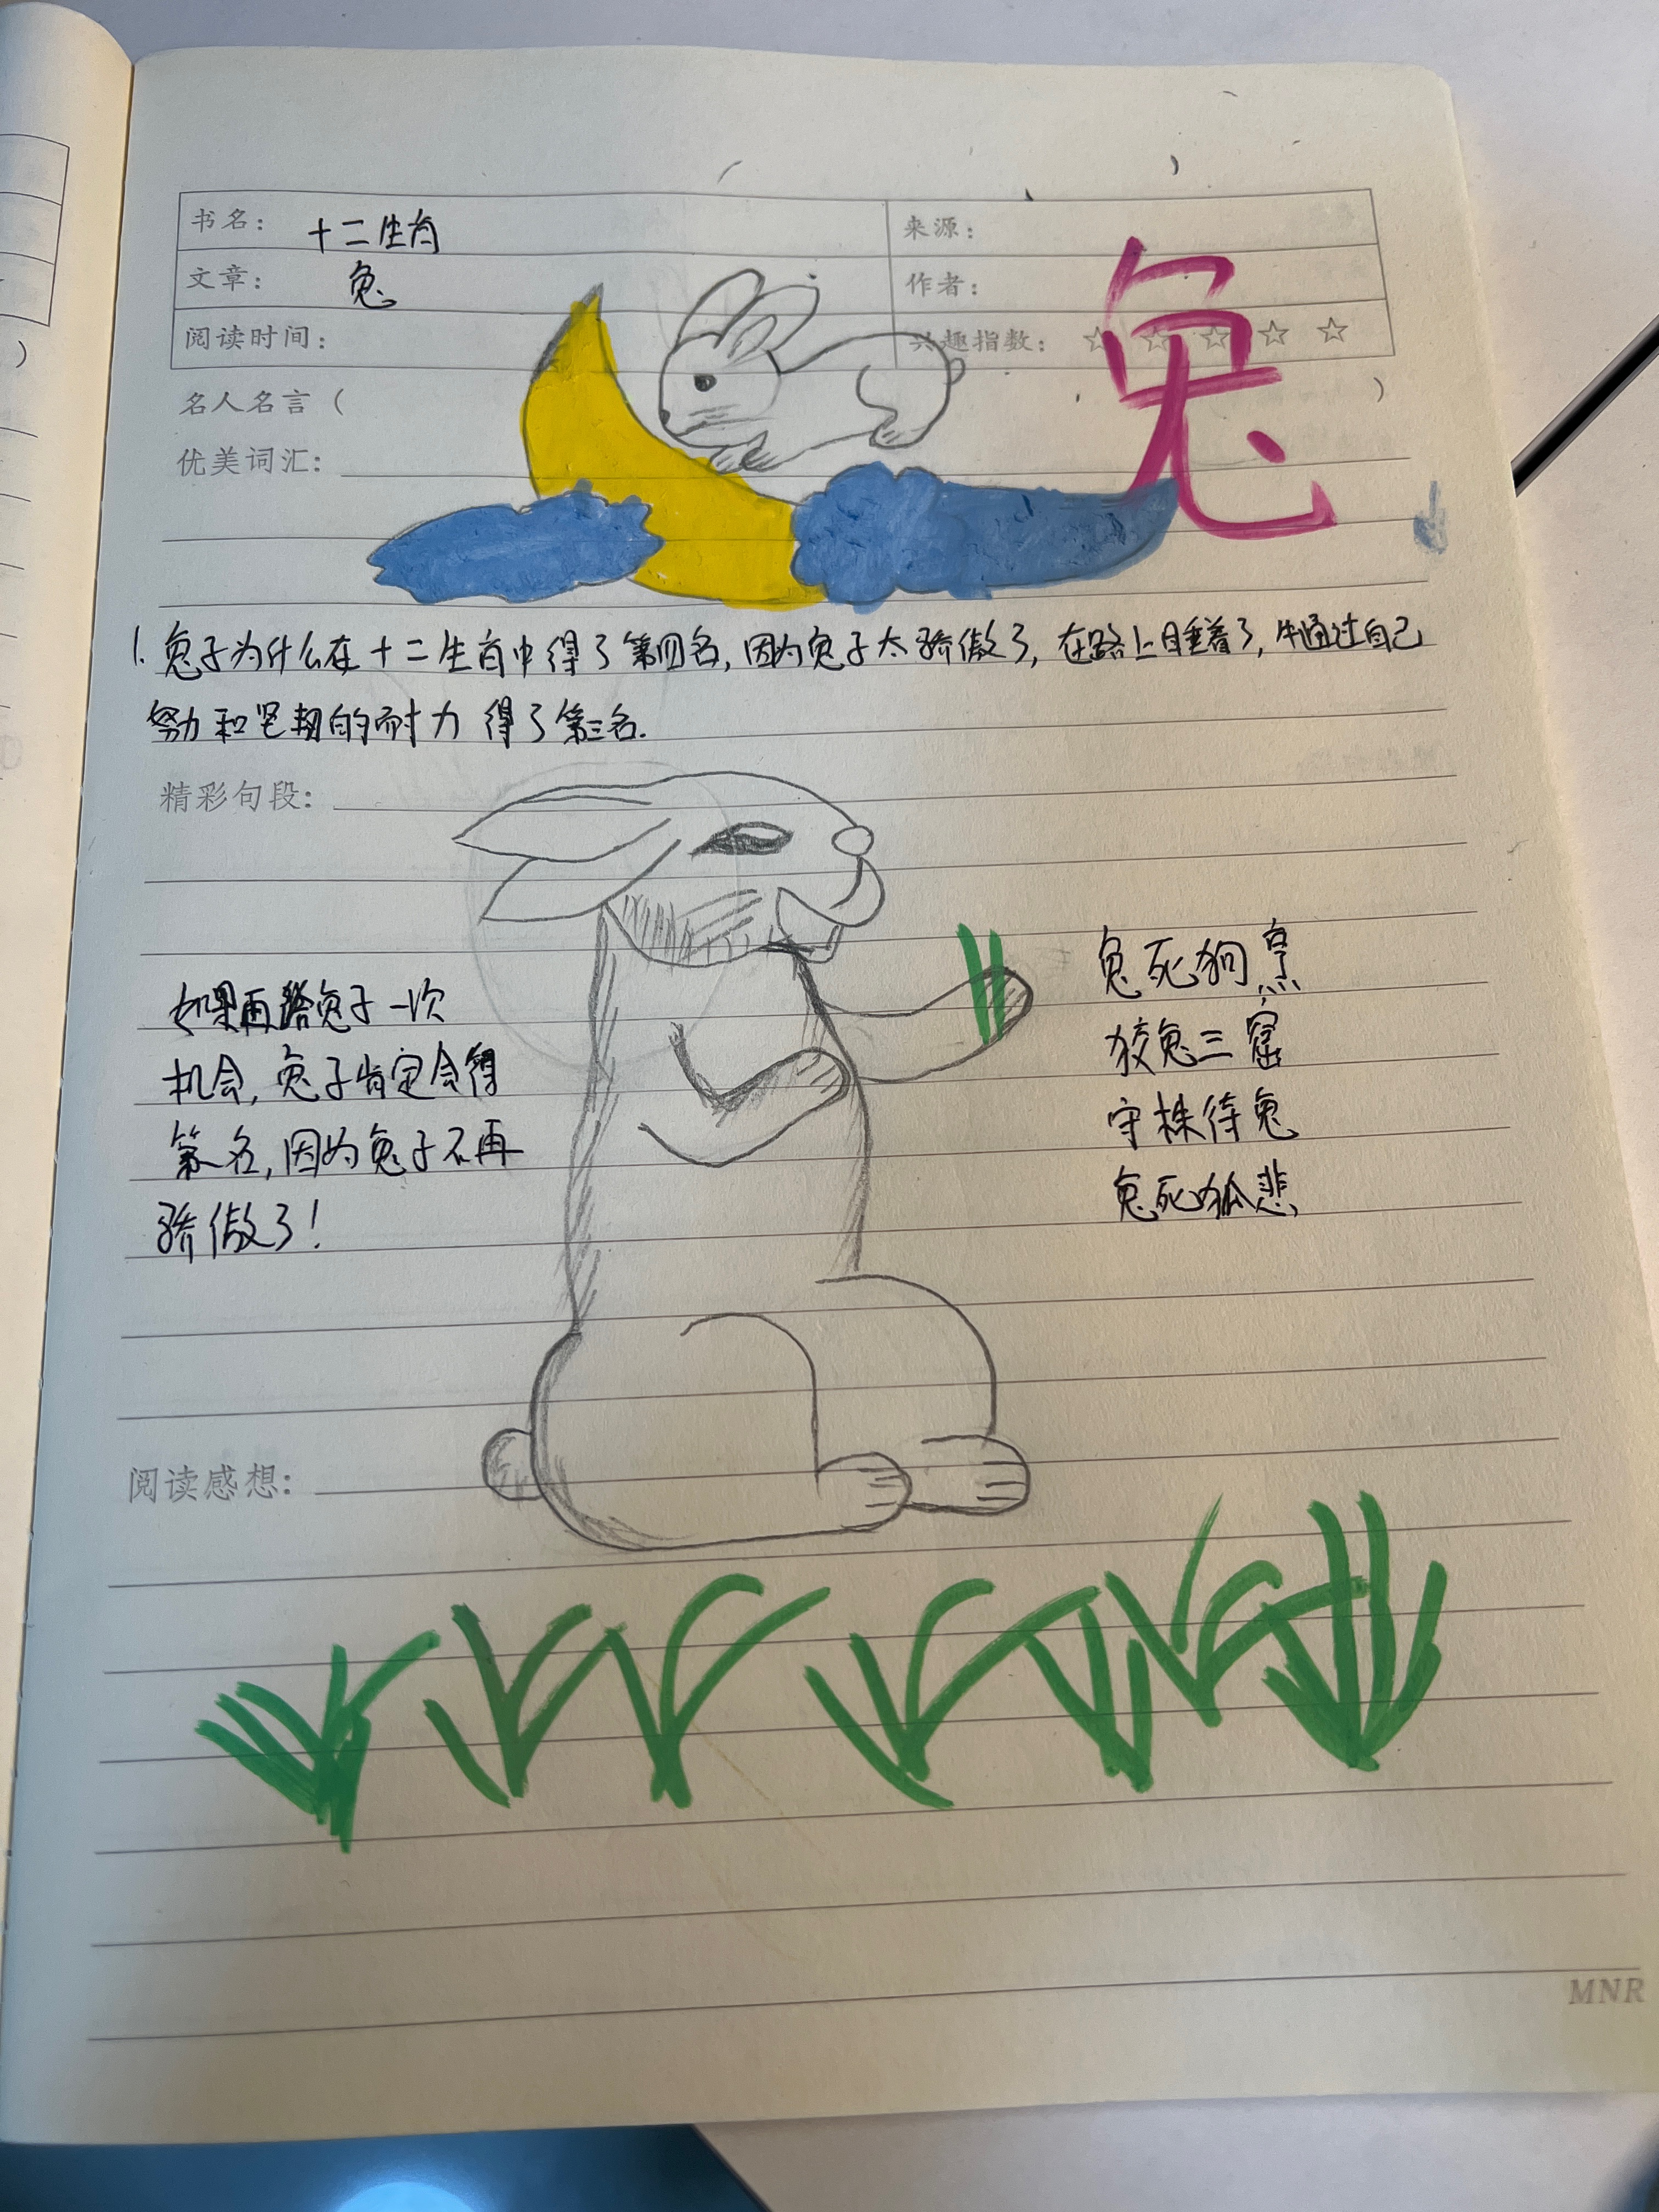 书名： 十二生肖
来源：
文章： 兔
作者：
阅读时间：
兴趣指数：☆ ☆ ☆ ☆ ☆
兔
名人名言（ ）
优美词汇：
1. 兔子为什么在十二生肖中得了第四名，因为兔子太骄傲了，在路上睡着了，牛通过自己
努力和坚韧的耐力 得了第三名.
精彩句段：
如果再给兔子一次
机会，兔子肯定会得
第一名，因为兔子不再
骄傲了！
兔死狗烹
狡兔三窟
守株待兔
兔死狐悲
阅读感想：
MNR